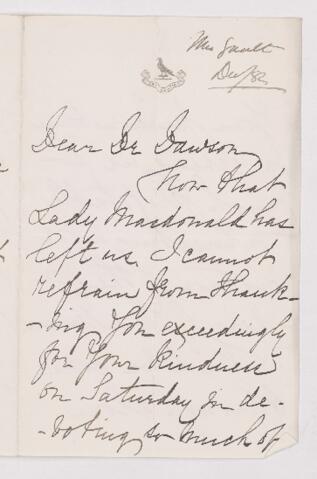 Mrs Gault
Dec/82
Dear Dr Dawson
Now that
Lady Macdonald has
left us. I cannot
refrain from thank-
-ing You exceedingly
for Your kindness
on Saturday in de-
-voting so much of